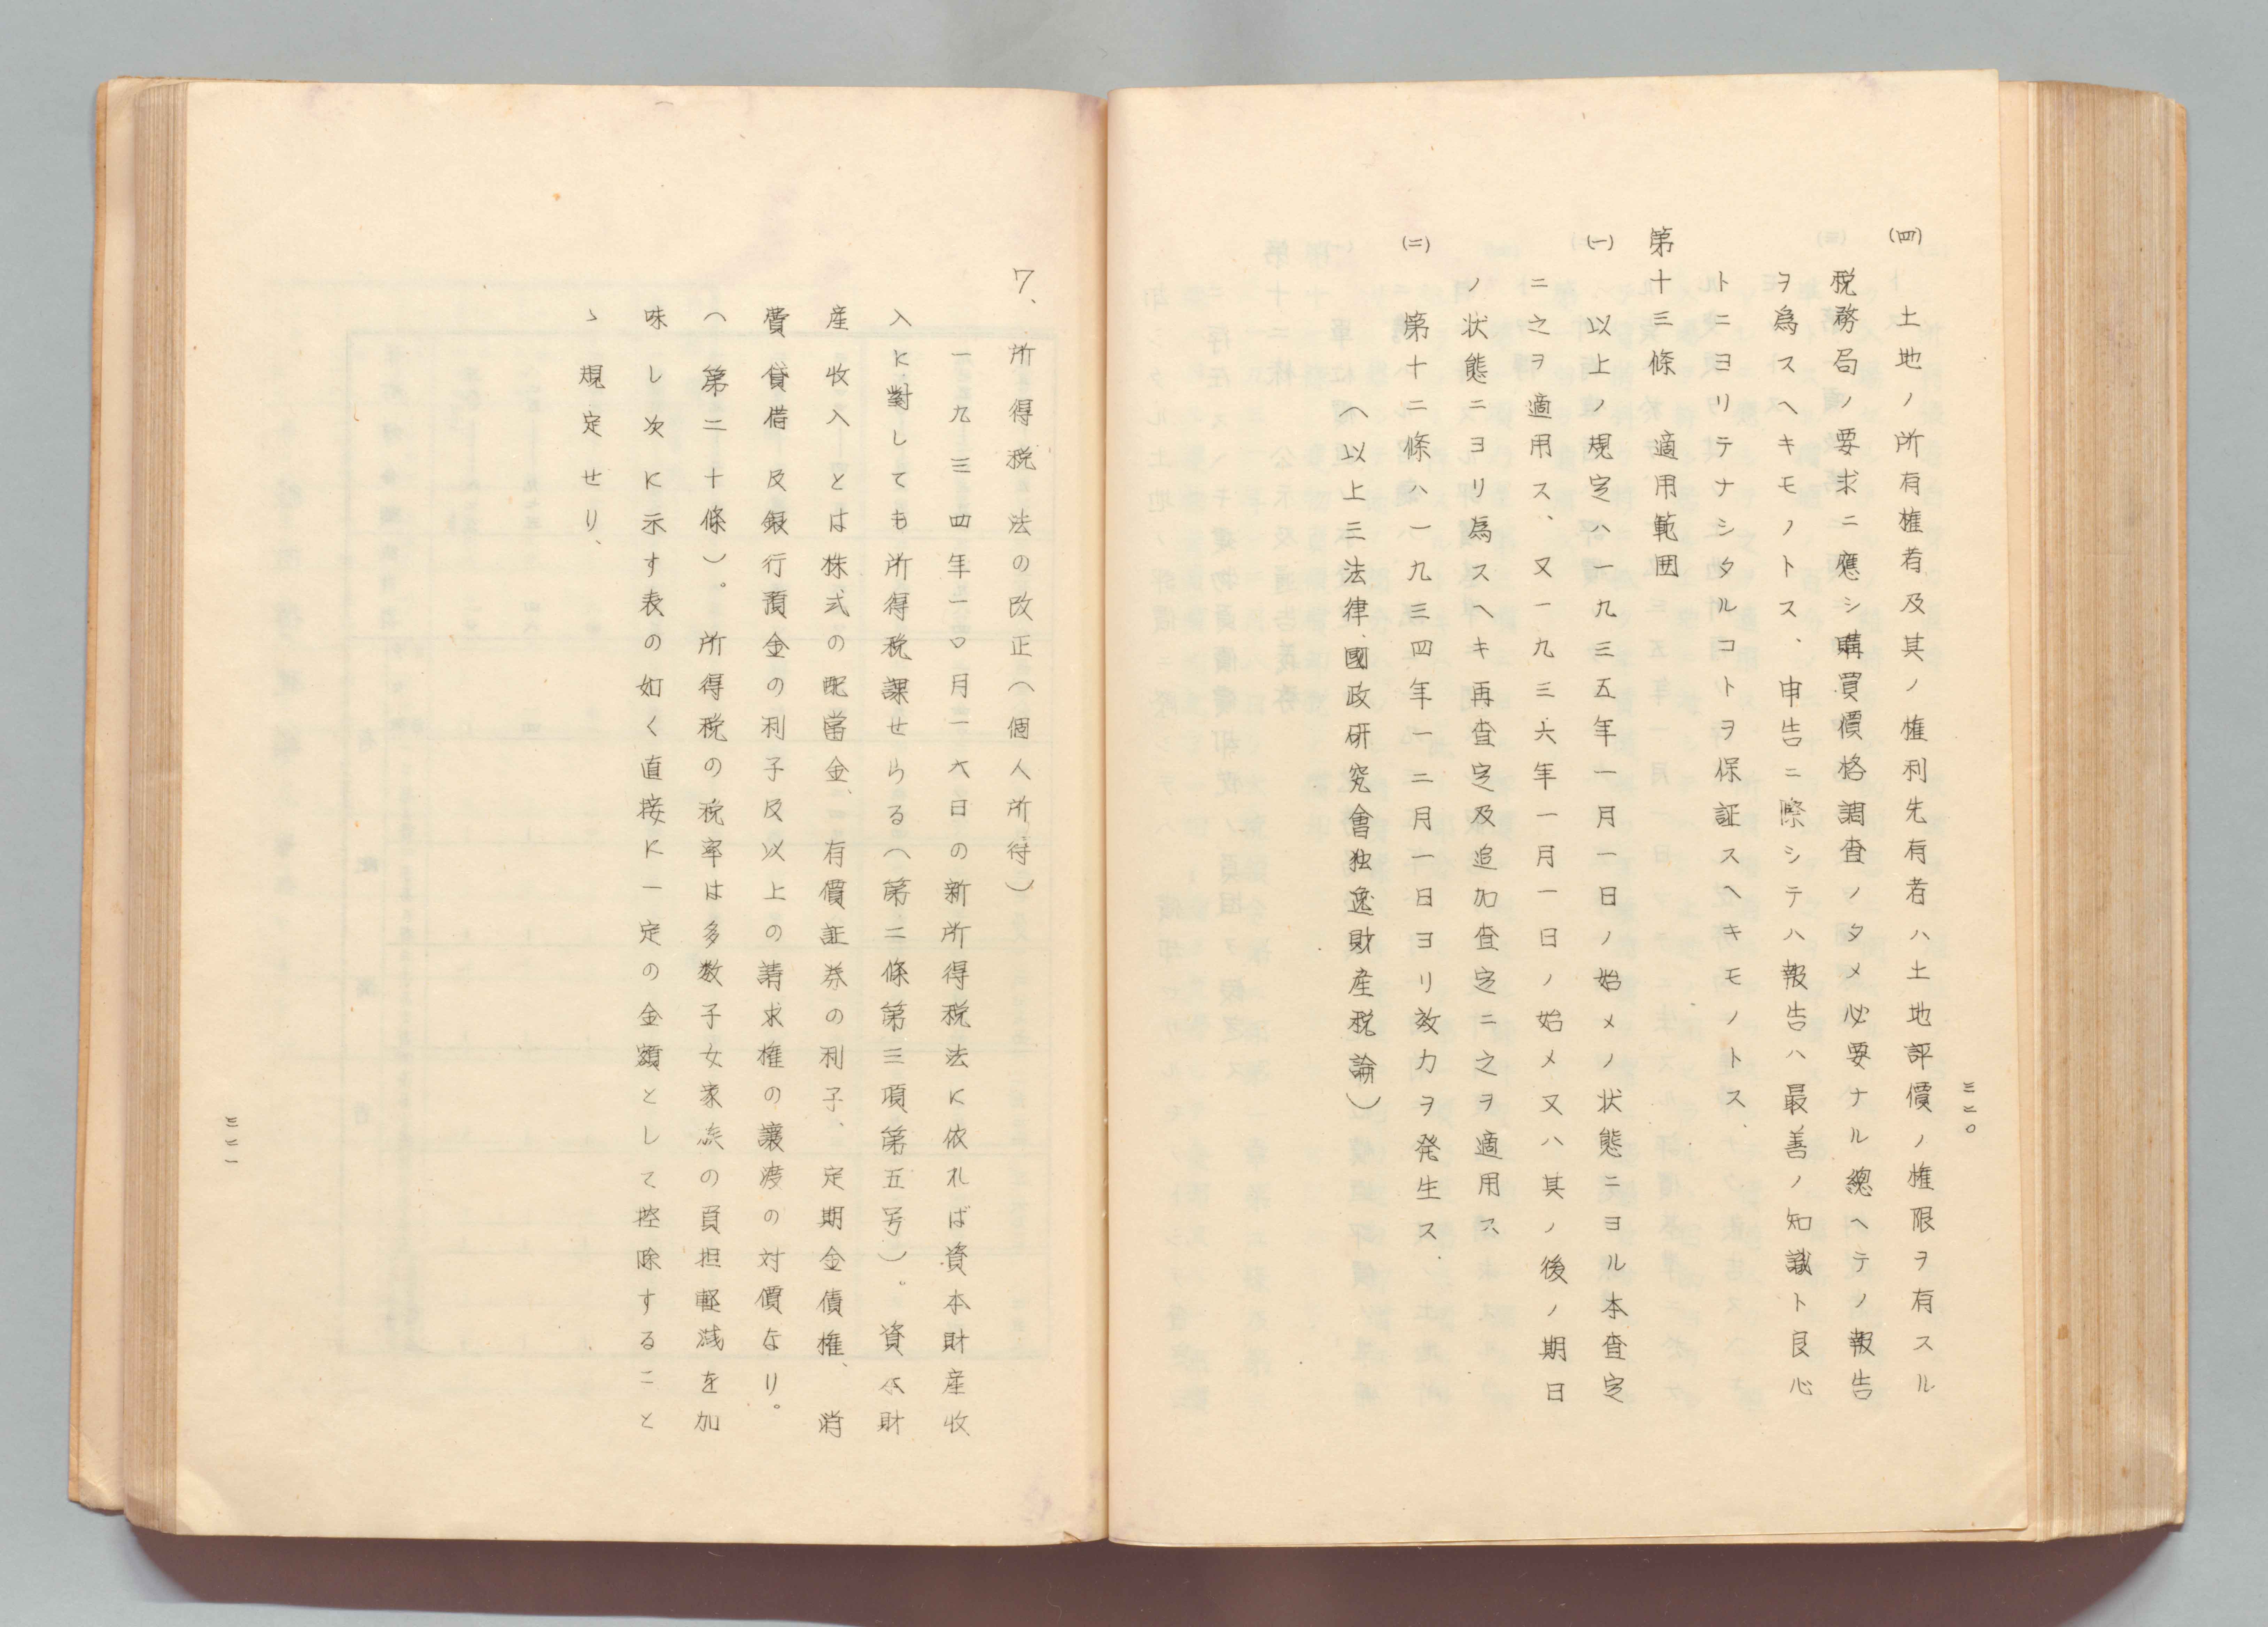 三二〇
(四)　土地ノ所有権者及其ノ権利先有者ハ土地評價ノ権限ヲ有スル
税務局ノ要求ニ應シ購買價格調査ノタメ必要ナル總ヘテノ報告
ヲ為スヘキモノトス、申告ニ際シテハ報告ハ最善ノ知識ト良心
トニヨリテナシタルコトヲ保証スヘキモノトス、
第十三條　適用範囲
(一)　以上ノ規定ハ一九三五年一月一日ノ始メノ状態ニヨル本査定
ニ之ヲ適用ス、又一九三六年一月一日ノ始メ又ハ其ノ後ノ期日
ノ状態ニヨリ為スヘキ再査定及追加査定ニ之ヲ適用ス
(二)　第十二條ハ一九三四年一二月一日ヨリ效力ヲ発生ス、
（以上三法律國政研究會独逸財産税論）
7、所得税法の改正（個人所得）
一九三四年一〇月一六日の新所得税法に依れば資本財産收
入に對しても所得税課せらる（第二條第三項第五号）。資本財
産收入とは株式の配當金、有價証券の利子、定期金債権、消
費貸借及銀行預金の利子及以上の請求権の譲渡の対價なり。
（第二十條）。所得税の税率は多数子女家族の負担軽減を加
味し次に示す表の如く直接に一定の金額として控除すること
ゝ規定せり、
三二一